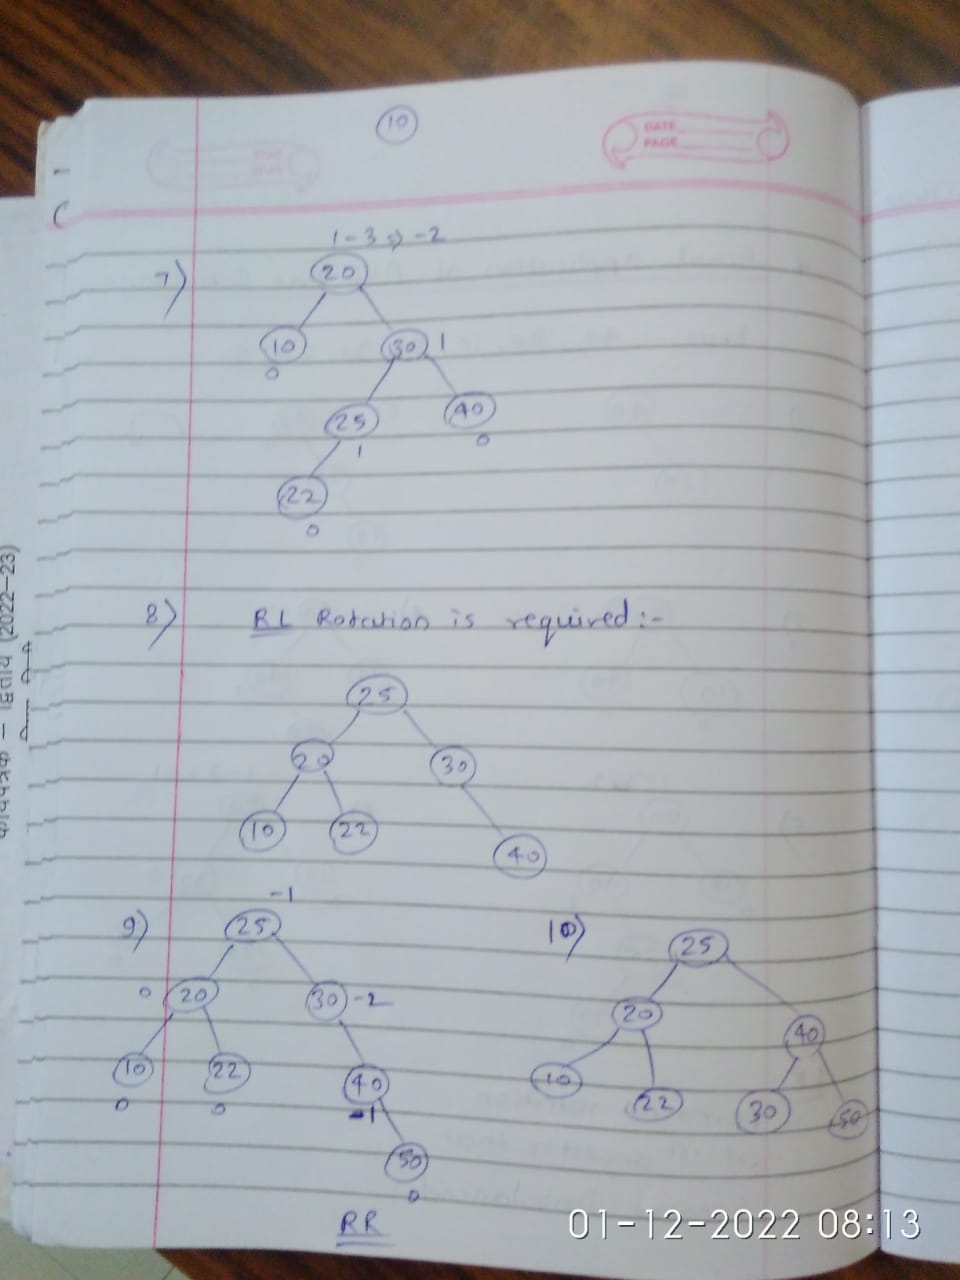 10
DATE
PAGE
1-3 => -2
7)
20
10
30
1
0
25
40
1
0
22
0
8) RL Rotation is required:-
25
20
30
10
22
40
9)
-1
25
0
20
30
-2
10
22
40
0
0
-1
50
0
RR
10)
25
20
40
10
22
30
50
द्वितीय (2022-23)
01-12-2022 08:13